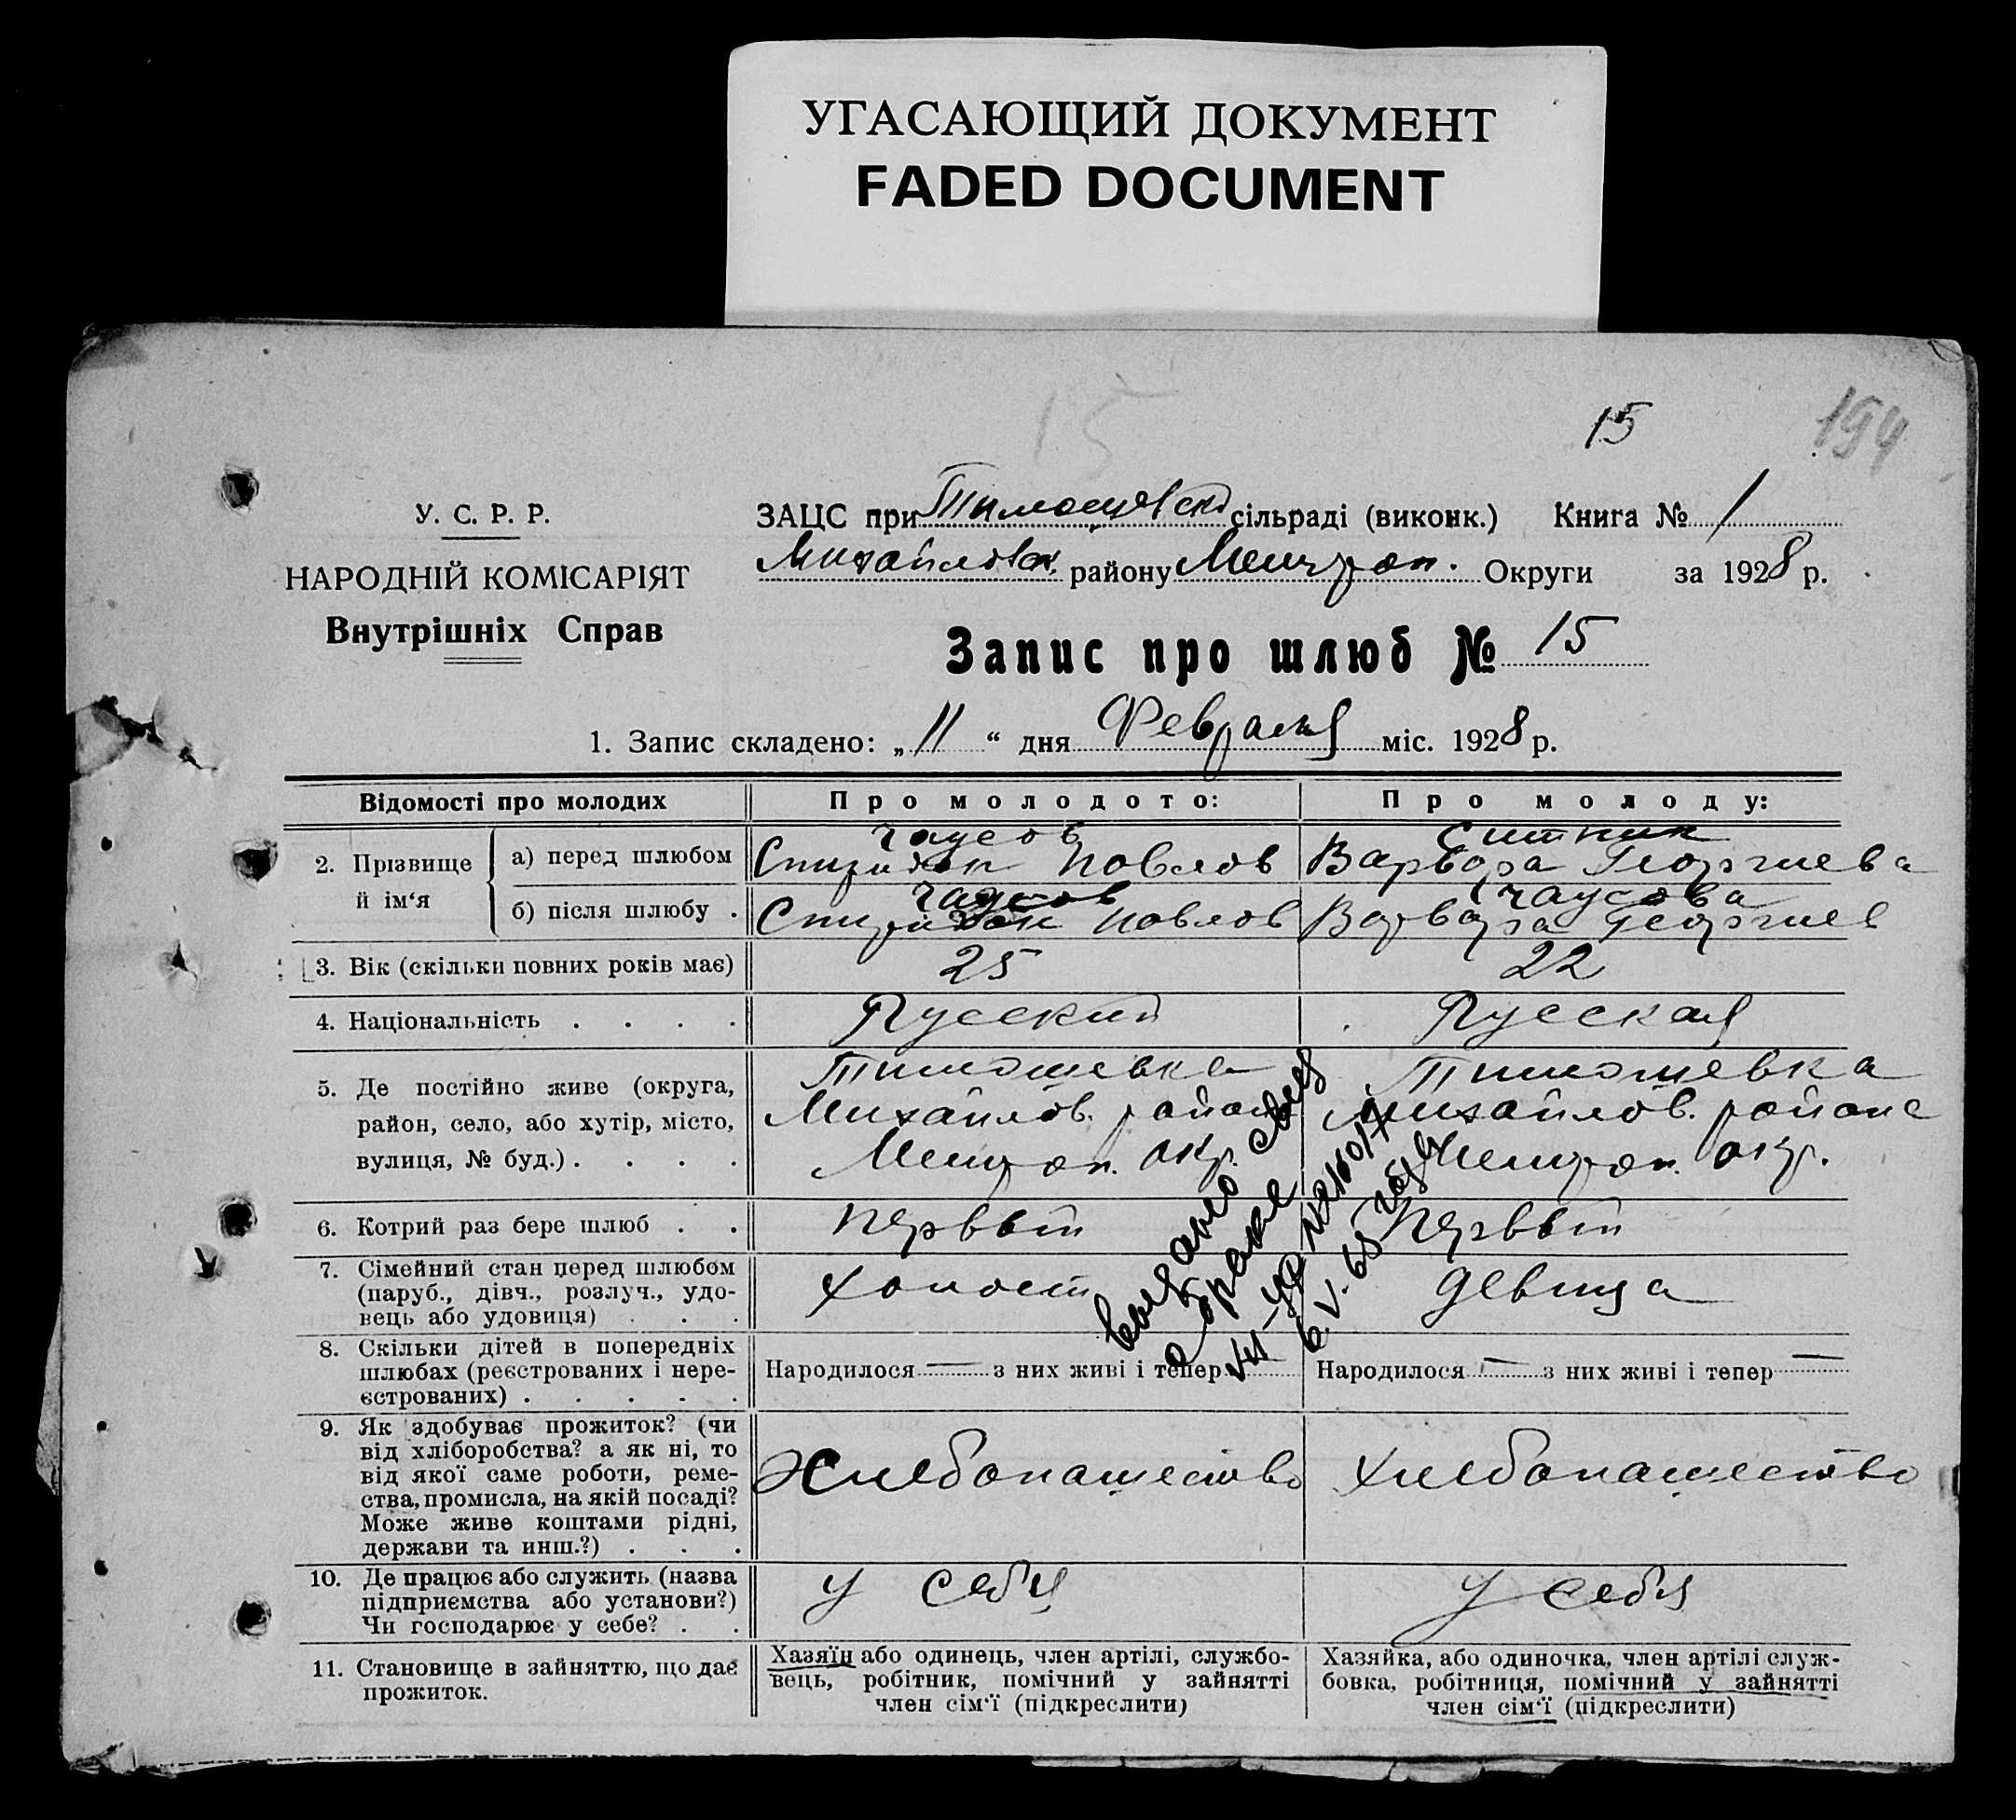 УГАСАЮЩИЙ ДОКУМЕНТ
FADED DOCUMENT
15
15
194
У. С. Р. Р.
НАРОДНІЙ КОМІСАРІЯТ
Внутрішніх Справ
ЗАЦС при Тимошевской сільраді (виконк.) Книга № 1
Михайловск. району Мелитоп. Округи за 1928 р.
Запис про шлюб № 15
1. Запис складено: „11“ дня Февраля міс. 1928 р.
Відомості про молодих
Про молодого:
Про молоду:
2. Прізвище й ім‘я
а) перед шлюбом
Чаусов
Спиридон Повлов
Ситник
Варвара Георгиева
б) після шлюбу .
Чаусов
Спиридон Повлов
Чаусова
Варвара Георгиев
3. Вік (скільки повних років має)
25
22
4. Національність . . . .
Русский
Русская
5. Де постійно живе (округа,
район, село, або хутір, місто,
вулиця, № буд.) . . . .
Тимошевка
Михайлов. района
Мелитоп. окр.
Тимошевка
Михайлов. района
Мелитоп. окр.
6. Котрий раз бере шлюб . .
Первый
Первый
7. Сімейний стан перед шлюбом
(паруб., дівч., розлуч., удо-
вець або удовиця) . . .
Холост
Девица
8. Скільки дітей в попередніх
шлюбах (реєстрованих і нере-
єстрованих) . . . . .
Народилося — з них живі і тепер
Народилося — з них живі і тепер —
9. Як здобуває прожиток? (чи
від хліборобства? а як ні, то
від якої саме роботи, реме-
ства, промисла, на якій посаді?
Може живе коштами рідні,
держави та инш.?) . . .
Хлебопашество
Хлебопашество
10. Де працює або служить (назва
підприємства або установи?)
Чи господарює у себе? . .
У себя
У себя
11. Становище в зайняттю, що дає
прожиток.
Хазяїн або одинець, член артілі, службо-
вець, робітник, помічний у зайнятті
член сім‘ї (підкреслити)
Хазяйка, або одиночка, член артілі служ-
бовка, робітниця, помічний у зайнятті
член сім‘ї (підкреслити)
выдано свид
о браке
6.V.65 года